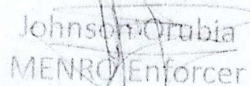 Johnson Orubia
MENRO Enforcer